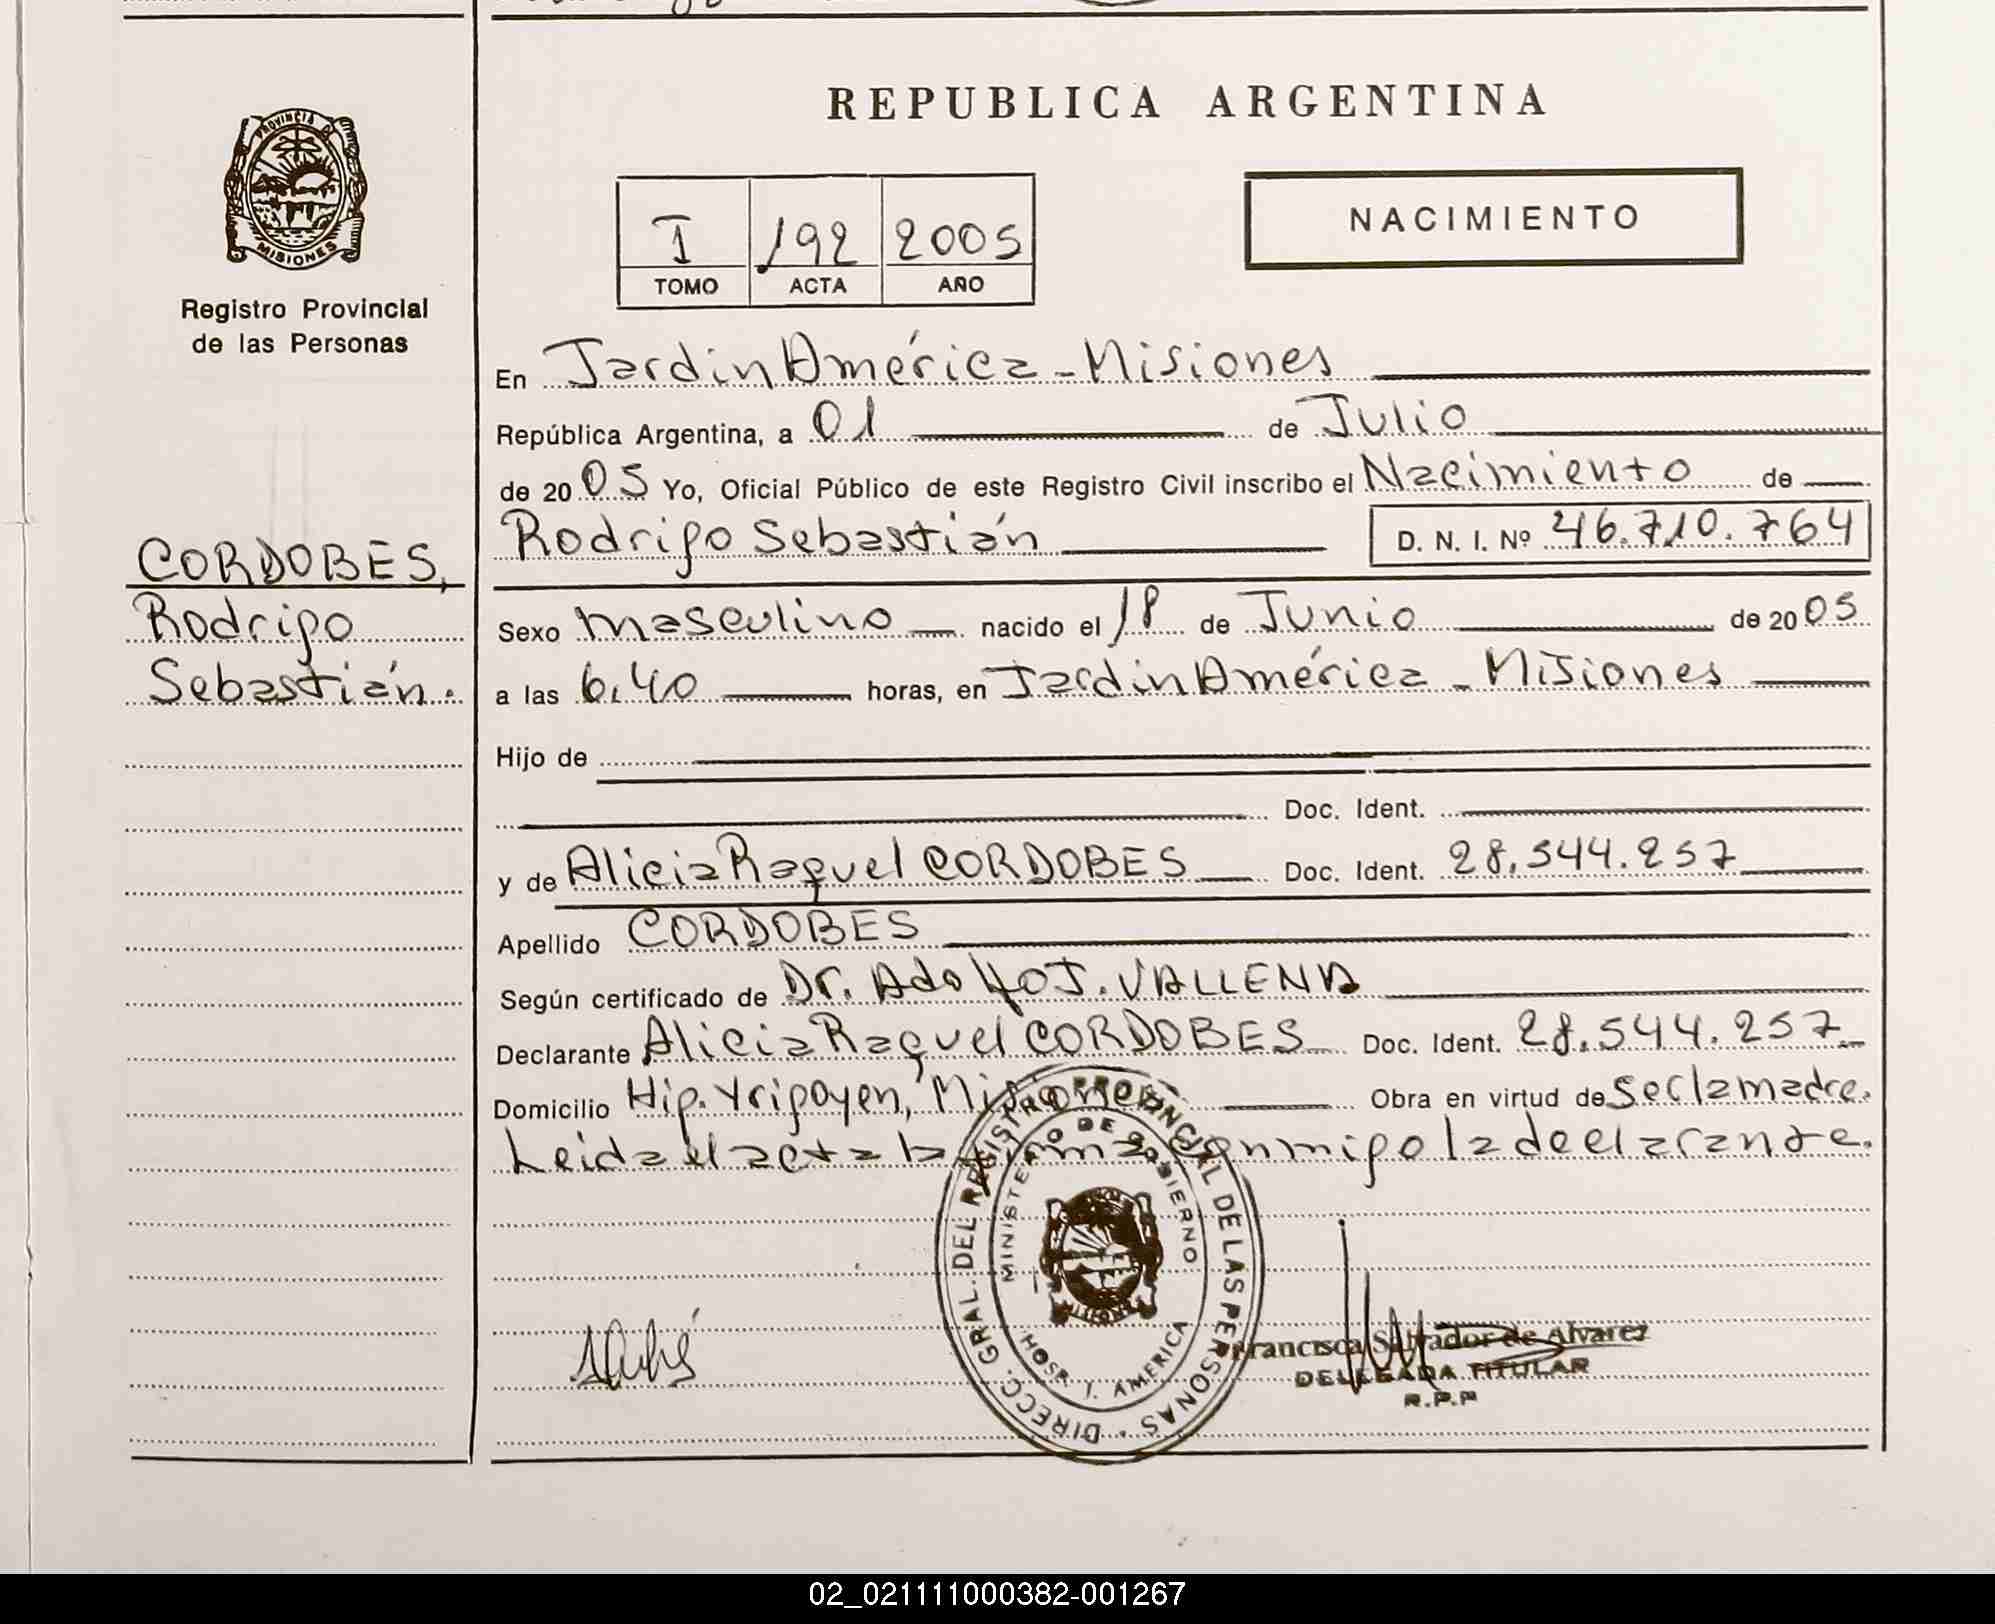 REPUBLICA ARGENTINA
PROVINCIA DE
MISIONES
Registro Provincial
de las Personas
NACIMIENTO
I 192 2005
TOMO ACTA AÑO
En Jardin América - Misiones
República Argentina, a 01 de Julio
de 2005 Yo, Oficial Público de este Registro Civil inscribo el Nacimiento de
Rodrigo Sebastián D. N. I. Nº 46.710.764
CORDOBES,
Rodrigo
Sebastián.
Sexo masculino nacido el 18 de Junio de 2005
a las 6.40 horas, en Jardin América - Misiones
Hijo de
Doc. Ident.
y de Alicia Raquel CORDOBES Doc. Ident. 28.544.257
Apellido CORDOBES
Según certificado de Dr. Adolfo J. VALLENA
Declarante Alicia Raquel CORDOBES Doc. Ident. 28.544.257
Domicilio Hip. Yrigoyen, Misiones Obra en virtud de Ser la madre.
Leida el acta la firma conmigo la declarante.
DIRECC. GRAL. DEL REGISTRO PROVINCIAL DE LAS PERSONAS
MINISTERIO DE GOBIERNO
HOSP. J. AMERICA
Francisca Salvador de Alvarez
DELEGADA TITULAR
R.P.P
02_021111000382-001267